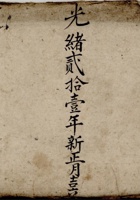 光緒貳拾壹年新正月吉